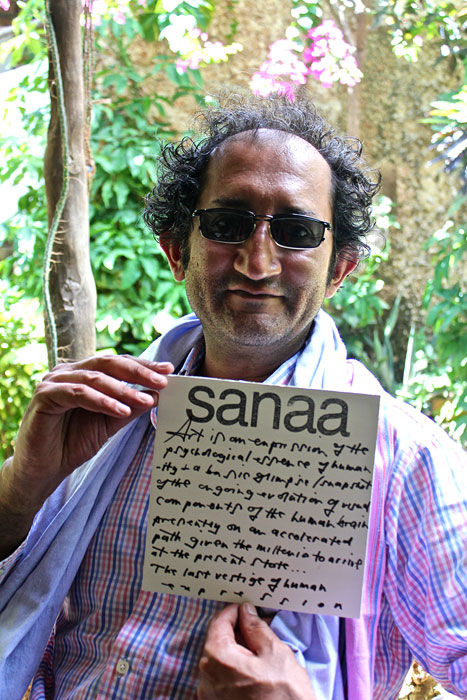 sanaa
Art is an expression of the
psychological essence of human
-ity + a basic glimpse/snapshot
of the ongoing evolution of visual
components of the human brain
presently on an accelerated
path given the millenia to arrive
at the present state...
The last vestige of human
expression